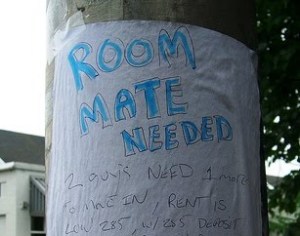 ROOM
MATE
NEEDED
2 guys NEED 1 more
to move IN, RENT IS
LOW 285 w/ 285 DEPOSIT